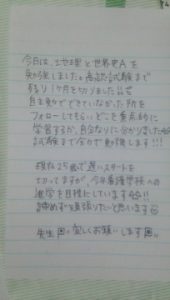 今日は、地理と世界史Aを
勉強しました。高認試験まで
残り1ヶ月を切りました
自主勉でできていなかった所を
フォローしてもらい、どこを重点的に
学習するか、自分なりに分かりました
試験まで全力で勉強します!!!
現在25歳で遅いスタートを
切ってますが、今年看護学校への
進学を目標にしています
諦めず頑張りたいと思います
先生 宜しくお願いします